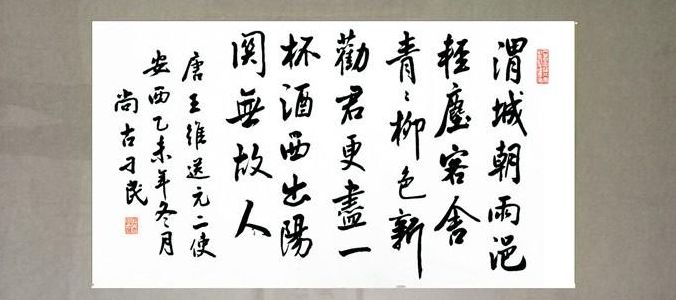 渭城朝雨浥
輕塵客舍
青〻柳色新
勸君更盡一
杯酒西出陽
関無故人
唐王維送元二使
安西乙未年冬月
尚古刁民